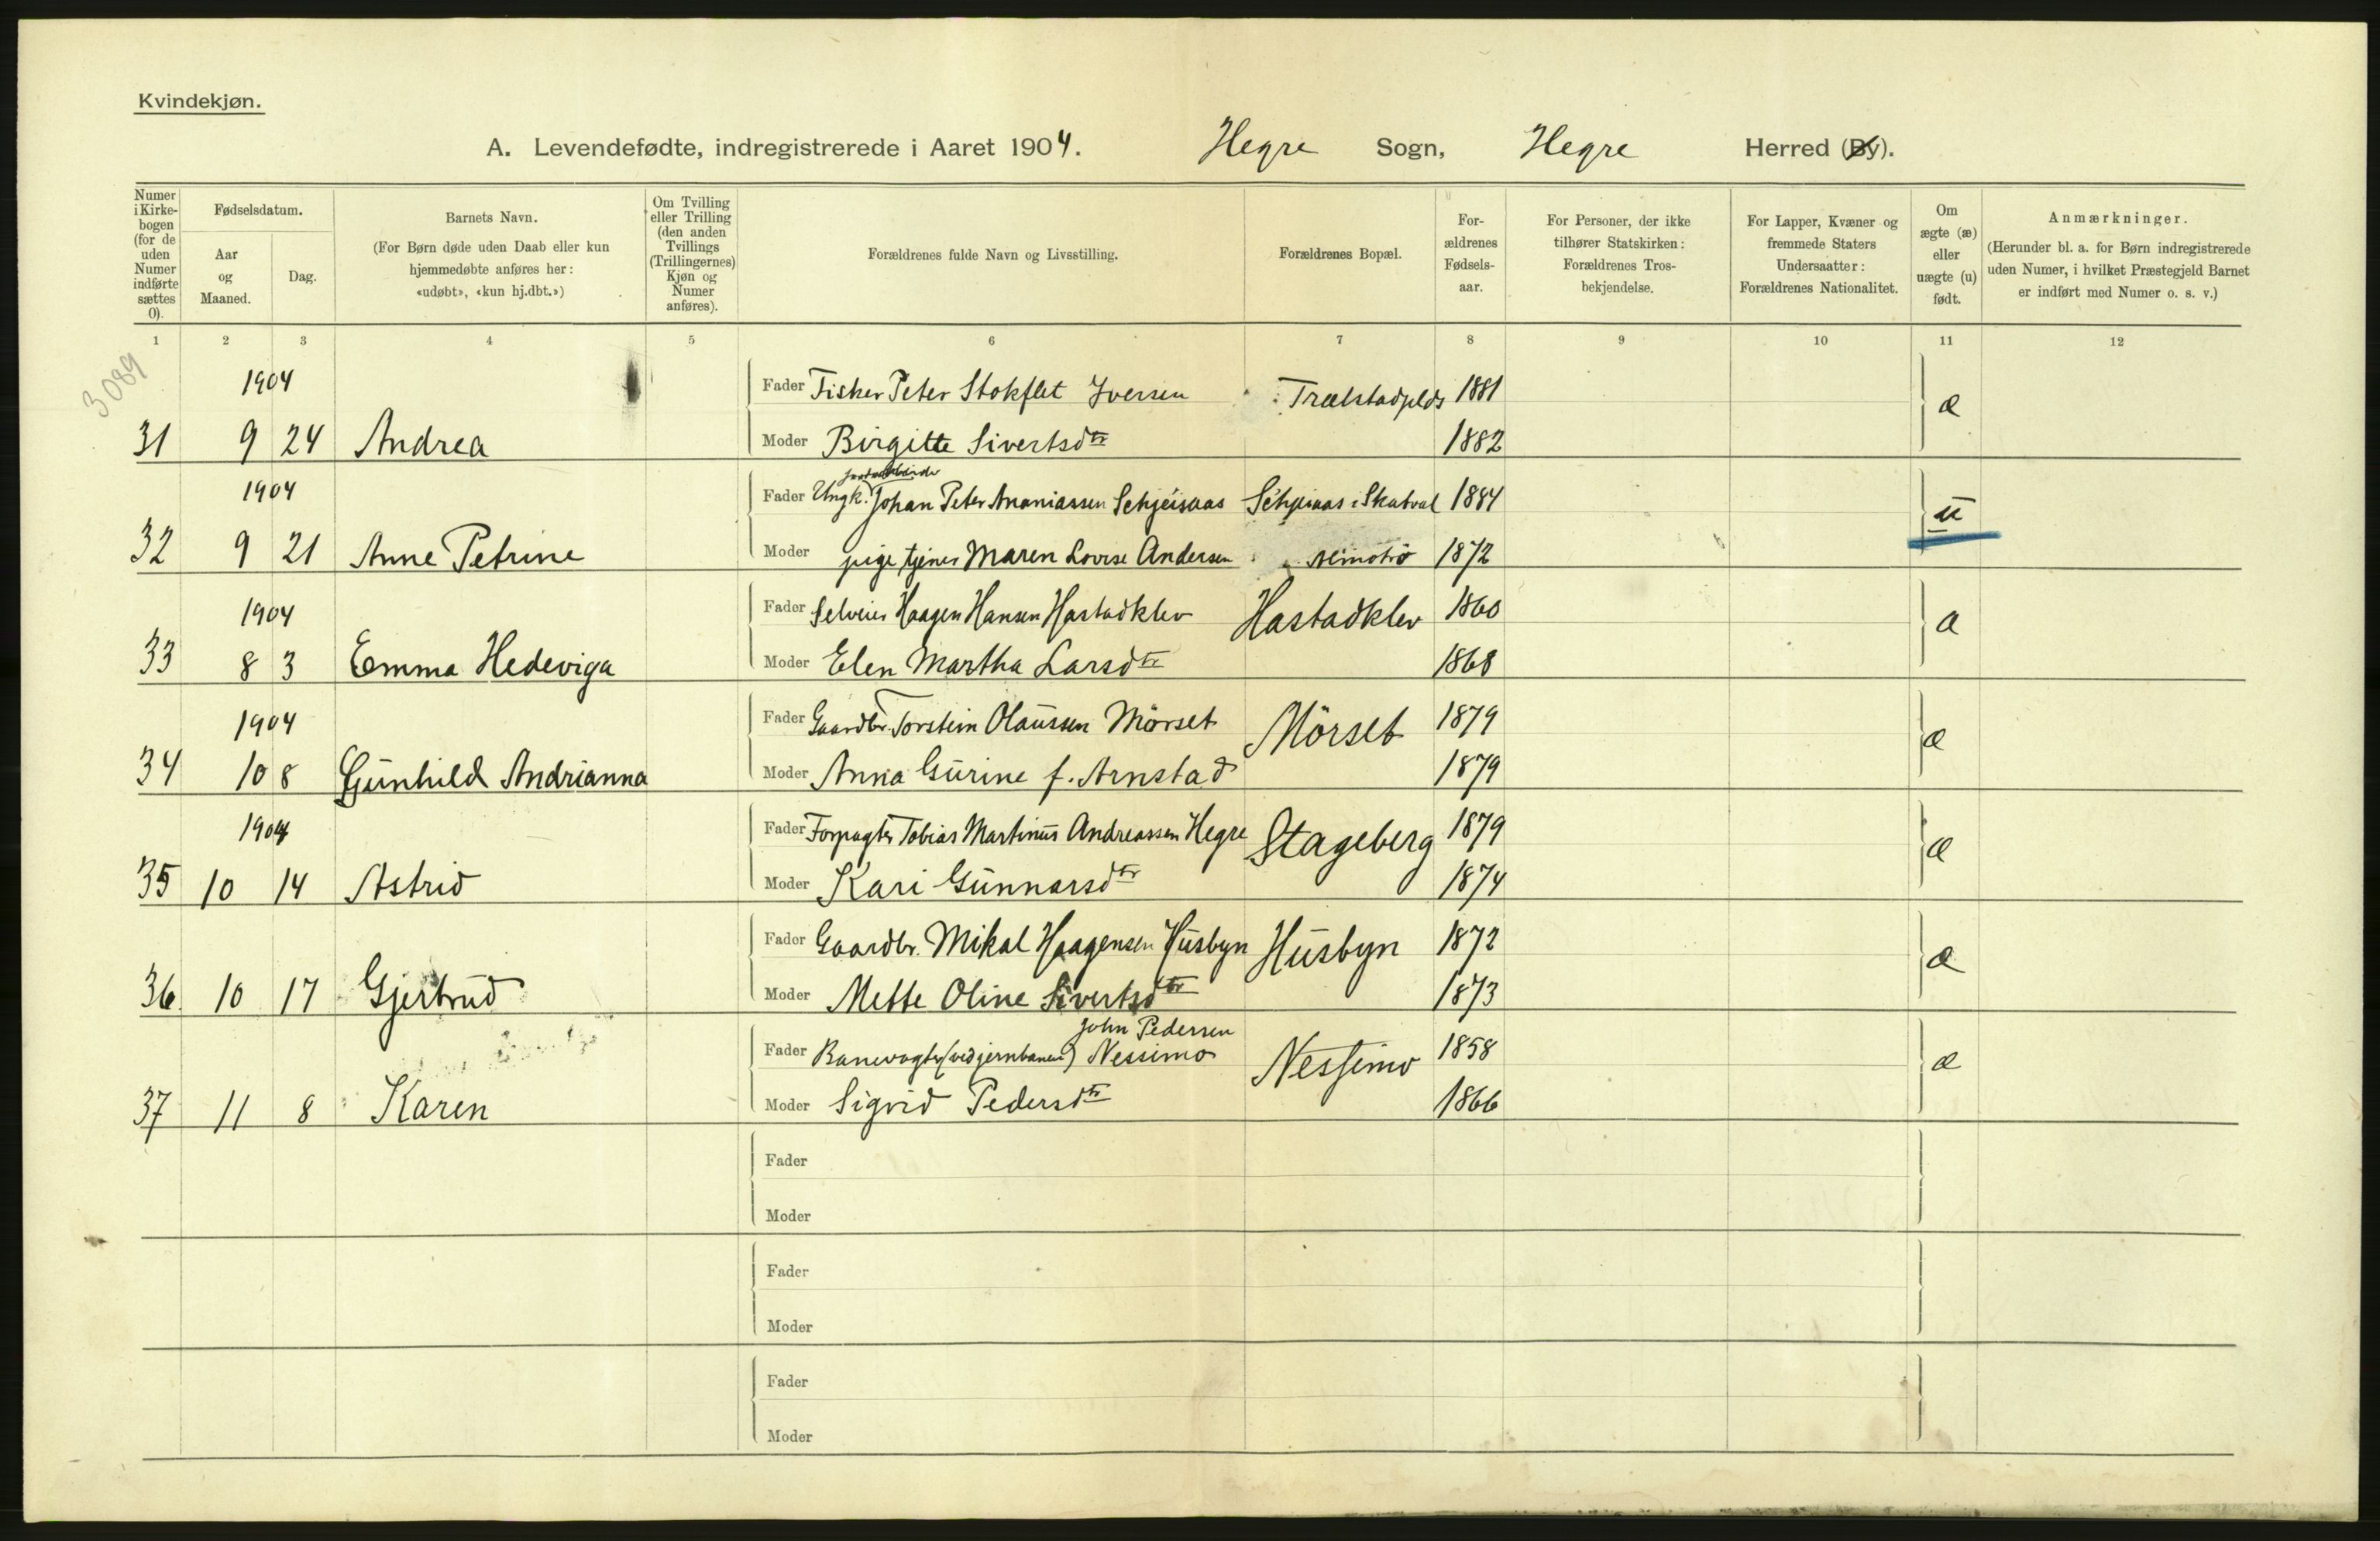 Kvindekjøn.
A. Levendefødte, indregistrerede i Aaret 1904. Hegre Sogn, Hegre Herred (By).
Numer i Kirkebogen (for de uden Numer indførte sættes 0).
Fødselsdatum.
Aar og Maaned.
Dag.
Barnets Navn.
(For Børn døde uden Daab eller kun hjemmedøbte anføres her: «udøbt», «kun hj.dbt.»)
Om Tvilling eller Trilling (den anden Tvillings (Trillingernes) Kjøn og Numer anføres).
Forældrenes fulde Navn og Livsstilling.
Forældrenes Bopæl.
Forældrenes Fødselsaar.
For Personer, der ikke tilhører Statskirken: Forældrenes Trosbekjendelse.
For Lapper, Kvæner og fremmede Staters Undersaatter: Forældrenes Nationalitet.
Om ægte (æ) eller uægte (u) født.
Anmærkninger.
(Herunder bl. a. for Børn indregistrerede uden Numer, i hvilket Præstegjeld Barnet er indført med Numer o. s. v.)
1 2 3 4 5 6 7 8 9 10 11 12
3089
1904 Fader Fisker Peter Stokflet Iversen 1881 æ
31 9 24 Andrea Moder Birgitte Sivertsdtr 1882
1904 Fader Ungk. Johan Peter Ananiassen Schjeisaas i Skatval 1884 u
32 9 21 Anne Petrine Moder pige tjener Maren Lovise Andersen 1872
1904 Fader Selveier Haagen Hansen Hastadklev Hastadklev 1860 æ
33 8 3 Emma Hedeviga Moder Elen Martha Larsdtr 1868
1904 Fader Gaardbr. Torstein Olaussen Mörset Mörset 1879 æ
34 10 8 Gunhild Andrianna Moder Anna Gurine f. Arnstad 1879
1904 Fader Forpagter Tobias Martinus Andreassen Hegre Stageberg 1879 æ
35 10 14 Astrid Moder Kari Gunnarsdtr 1874
Fader Gaardbr. Mikal Haagensen Husbyn Husbyn 1872 æ
36 10 17 Gjertrud Moder Mette Oline Sivertsdtr 1873
John Pedersen
Fader Banevogter (ved jernbanen) Nessimo Nessimo 1858 æ
37 11 8 Karen Moder Sigrid Pedersdtr 1866
Fader
Moder
Fader
Moder
Fader
Moder